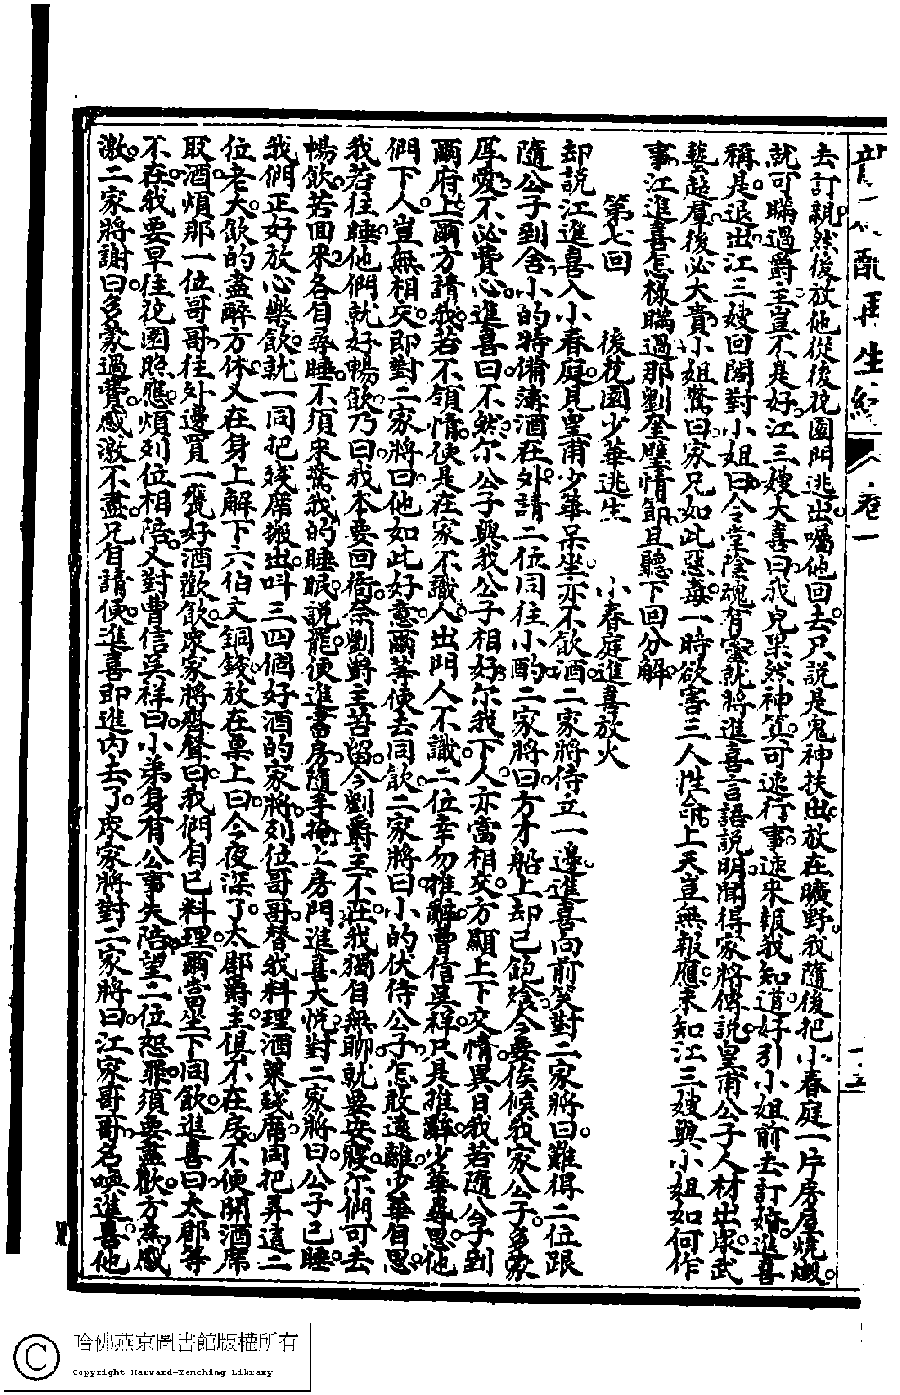 再生緣
卷一
去訂親然後放他從後花園門逃出囑他回去只說是鬼神扶出放在曠野我隨後把小春庭一片房屋燒燬
就可瞞過爵主豈不是好江三嫂大喜曰我兒果然神算可速行事速來報我知道好引小姐前去訂婚進喜
稱是退出江三嫂回閣對小姐曰令堂陰魂有靈就將進喜言語說明聞得家將傳說皇甫公子人材出眾武
藝超羣後必大貴小姐驚曰家兄如此惡毒一時欲害三人性命上天豈無報應未知江三嫂與小姐如何作
事江進喜怎樣瞞過那劉奎璧情節且聽下回分解
第七回 後花園少華逃生 小春庭進喜放火
却說江進喜入小春庭見皇甫少華呆坐亦不飲酒二家將侍立一邊進喜向前笑對二家將曰難得二位跟
隨公子到舍小的特備薄酒在外請二位同往小酌二家將曰方才船上却已飽飧今要俟候我家公子多蒙
厚愛不必費心進喜曰不然尔公子與我公子相好尔我下人亦當相交方顯上下交情異日我若隨公子到
爾府上爾方請我若不領情便是在家不識人出門人不識二位幸勿推辭曹信吳祥只是推辭少華尋思他
們下人豈無相交即對二家將曰他如此好意爾等便去同飲二家將曰小的伏侍公子怎敢遠離少華自思
我若往睡他們就好暢飲乃曰我本要回衙奈劉爵主苦留今劉爵主不在我獨自無聊就要安寢尔們可去
暢飲若回來各自尋睡不須來驚我的睡眠說罷便進書房隨手掩上房門進喜大悅對二家將曰公子已睡
我們正好放心樂飲就一同把殘席搬出叫三四個好酒的家將列位哥哥替我料理酒菜殘席同把弄這二
位老大飲的盡醉方休又在身上解下六伯文銅錢放在桌上曰今夜深了太郡爵主俱不在房不便開酒席
取酒煩那一位哥哥往外邊買一甕好酒歡飲眾家將齊聲曰我們自己料理爾當坐下同飲進喜曰太郡等
不在我要早往花園照應煩列位相陪又對曹信吳祥曰小弟身有公事失陪望二位恕罪須要盡歡方為感
激二家將謝曰多蒙過費感激不盡兄自請便進喜即進內去了眾家將對二家將曰江家哥哥名喚進喜他
哈佛燕京圖書館版權所有
Copyright Harvard-Yenching Library